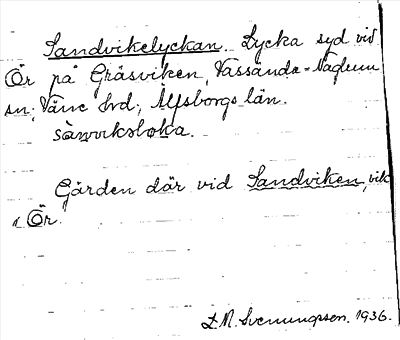 Sandvikelyckan. Lycka syd vid
Ör på Gräsviken, Vassända-Naglum
sn; Väne hrd; Älvsborgs län.
sànviksløka.
Gården där vid Sandviken, vik
i Ör.
L. M. Svenungsson. 1936.